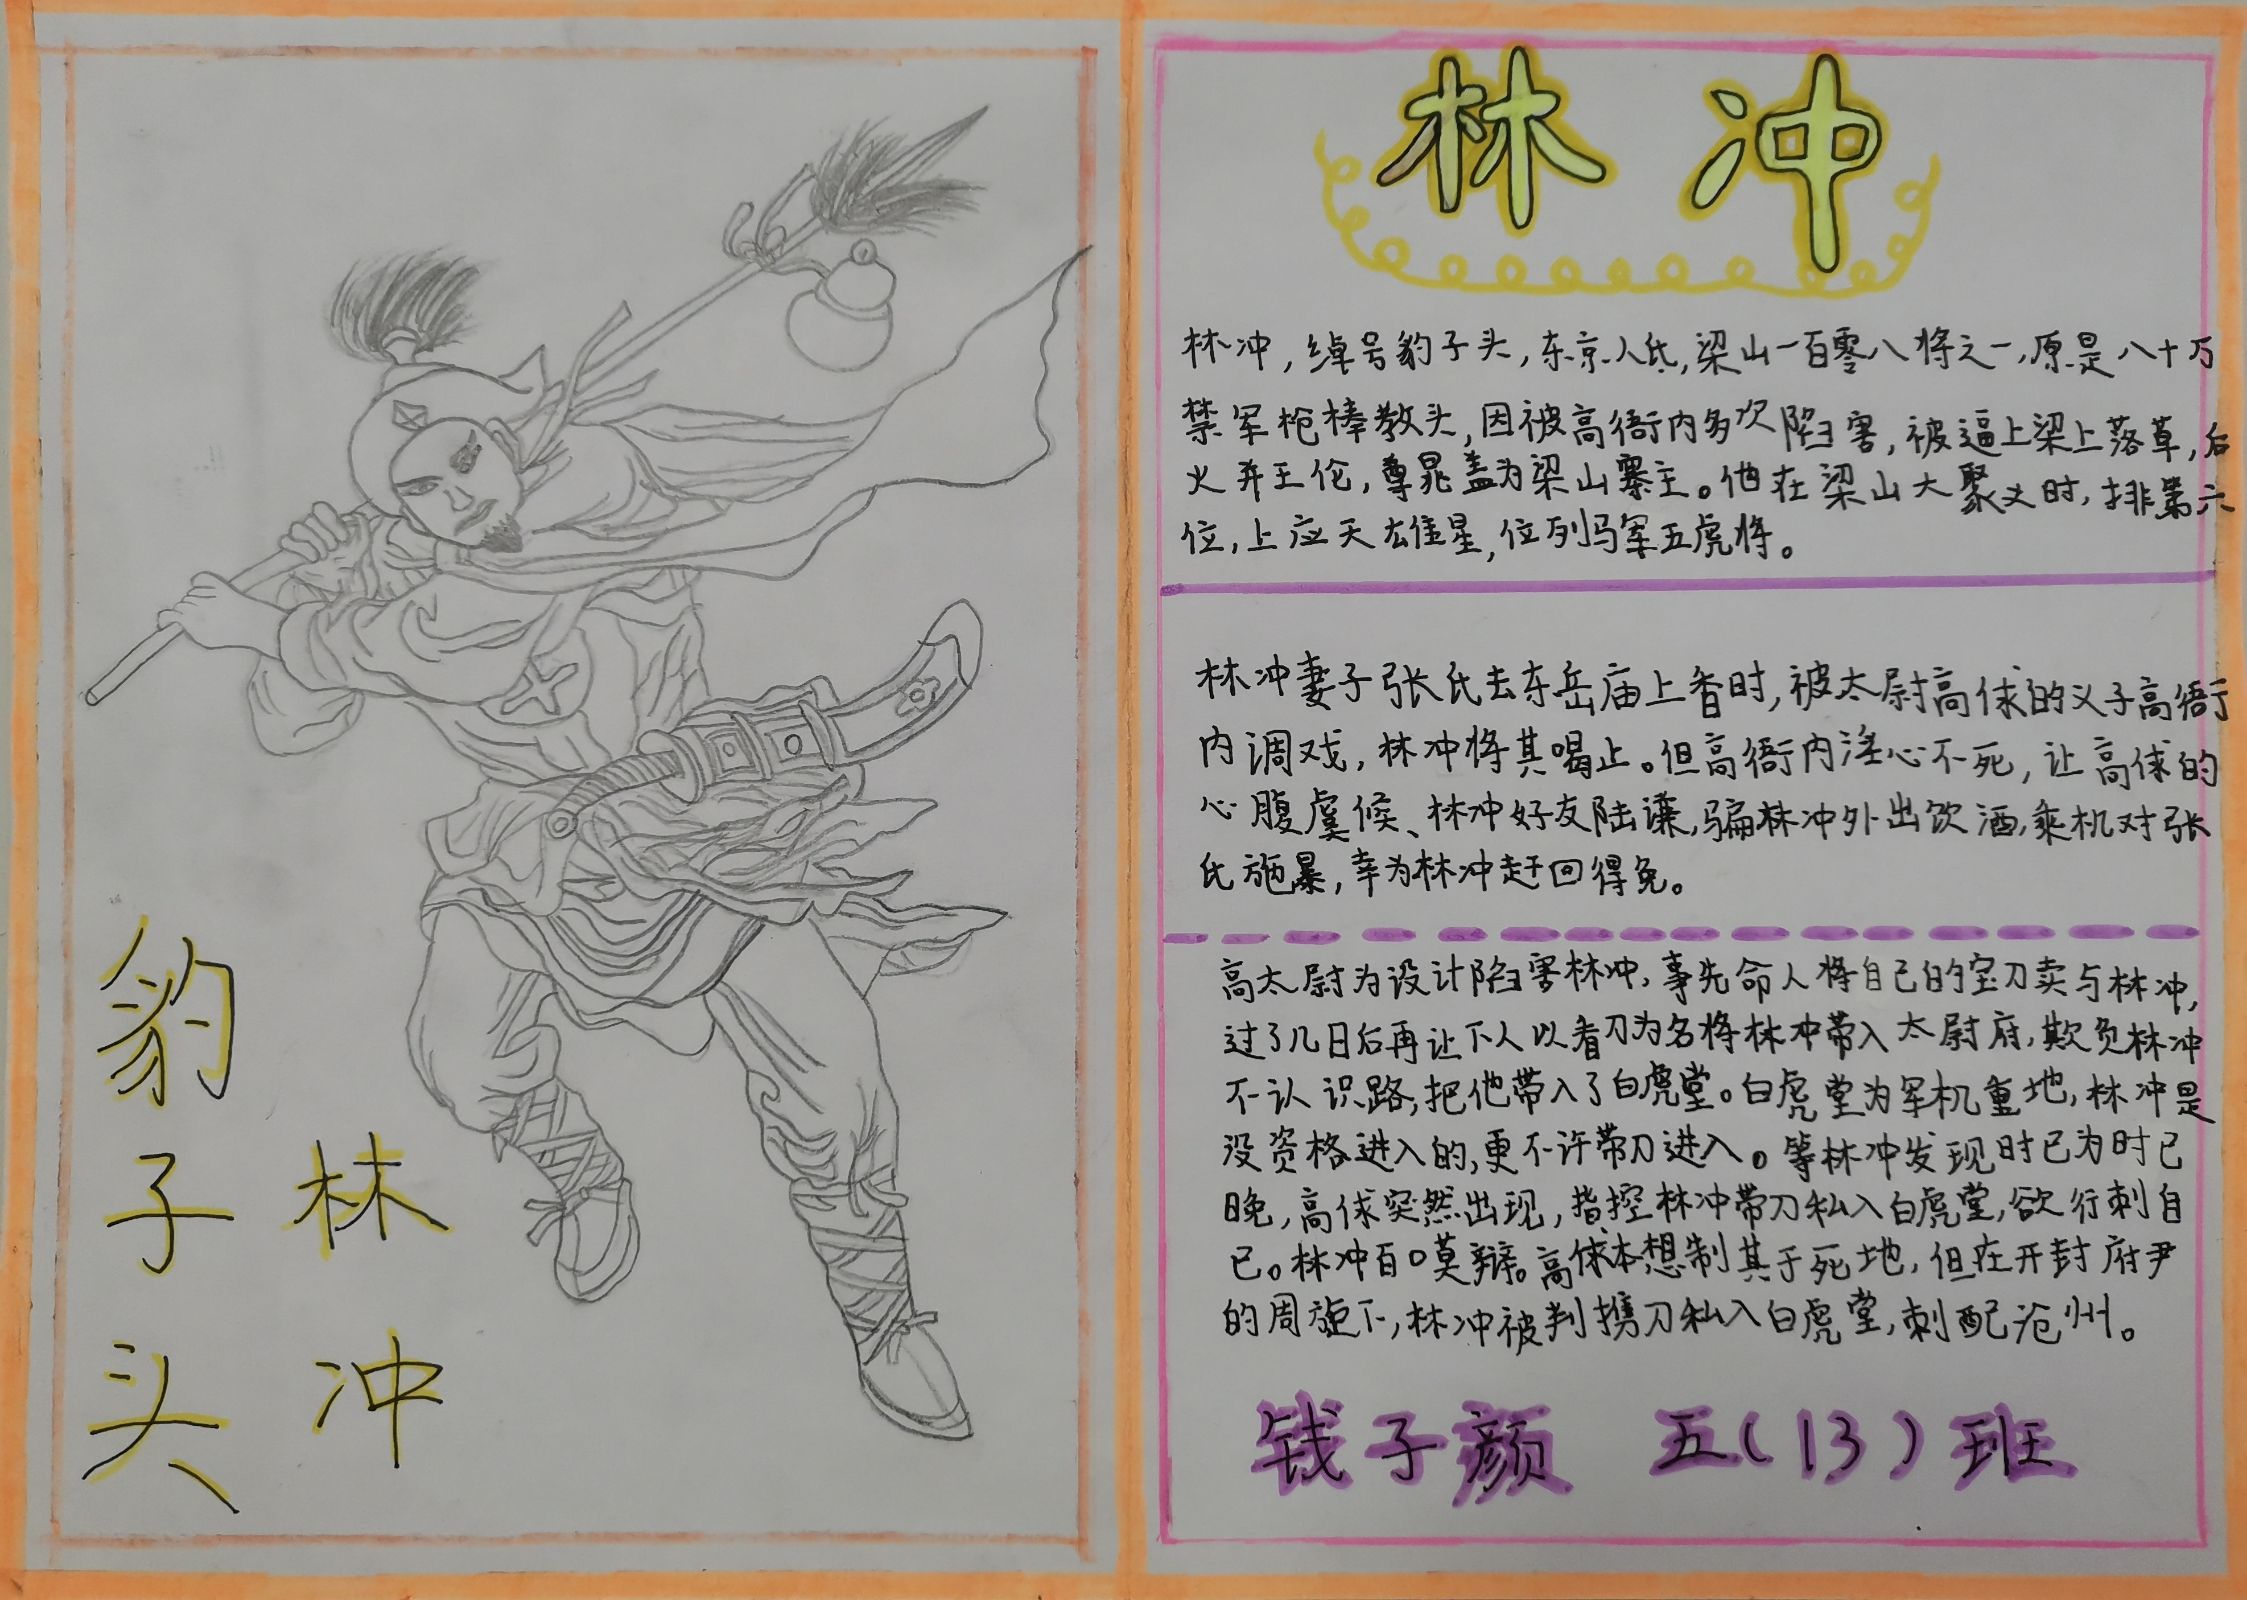 豹子头
林冲
林冲
林冲，绰号豹子头，东京人氏，梁山一百零八将之一，原是八十万
禁军枪棒教头，因被高衙内多次陷害，被逼上梁上落草，后
火并王伦，尊晁盖为梁山寨主。他在梁山大聚义时，排第六
位，上应天雄星，位列马军五虎将。
林冲妻子张氏去东岳庙上香时，被太尉高俅的义子高衙
内调戏，林冲将其喝止。但高衙内淫心不死，让高俅的
心腹虞候、林冲好友陆谦，骗林冲外出饮酒，乘机对张
氏施暴，幸为林冲赶回得免。
高太尉为设计陷害林冲，事先命人将自己的宝刀卖与林冲，
过了几日后再让下人以看刀为名将林冲带入太尉府，欺负林冲
不认识路，把他带入了白虎堂。白虎堂为军机重地，林冲是
没资格进入的，更不许带刀进入。等林冲发现时已为时已
晚，高俅突然出现，指控林冲带刀私入白虎堂，欲行刺自
己。林冲百口莫辩。高俅本想制其于死地，但在开封府尹
的周旋下，林冲被判携刀私入白虎堂，刺配沧州。
钱子颜 五(13)班